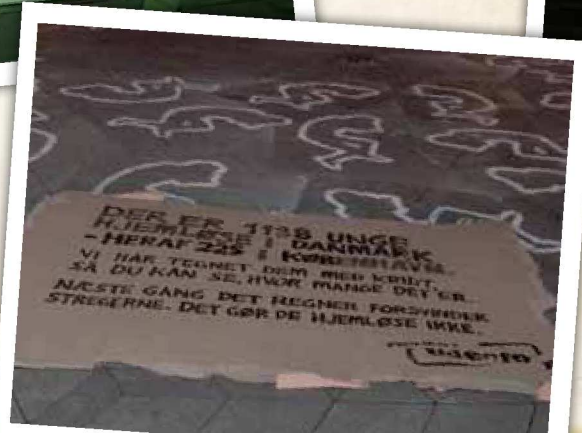 DER ER 1138 UNGE
HJEMLØSE I DANMARK
- HERAF 225 I KØBENHAVN.
VI HAR TEGNET DEM MED KRIDT.
SÅ DU KAN SE, HVOR MANGE DET ER.
NÆSTE GANG DET REGNER FORSVINDER
STREGERNE. DET GØR DE HJEMLØSE IKKE.